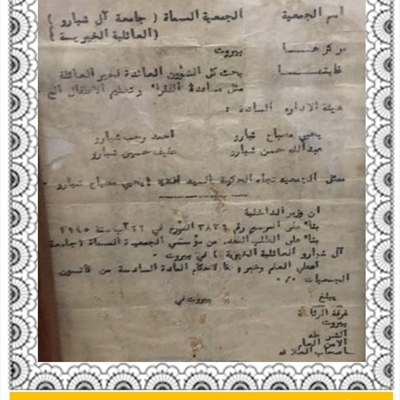 اسم الجمعية الجمعية المسماة ( جامعة آل شبارو )
( العائلية الخيرية )
مركزها بيروت
غايتها بحث كل الشؤون العائدة لخير العائلة
مثل مساعدة الفقراء وتعليم الاطفال الخ
هيئة الادارة السادة :
يحيى مصباح شبارو احمد رجب شبارو
عبدالله حسن شبارو عفيف حسين شبارو
ممثل الجمعية تجاه الحكومة السيد يحيى مصباح شبارو .
ان وزير الداخلية
بناء على المرسوم رقم ٣٨٢٤ المؤرخ في ٢٢ آب سنة ١٩٤٥
بناء على الطلب المقدم من مؤسسي الجمعية المسماة ( جامعة
آل شبارو العائلية الخيرية ) في بيروت .
اعطي العلم وخبر بنا لاحكام المادة السادسة من قانون
الجمعيات ./.
يبلغ بيروت في
غرفة الرئاسة
بيروت
الشرطة
الامن العام
اصحاب العلاقة